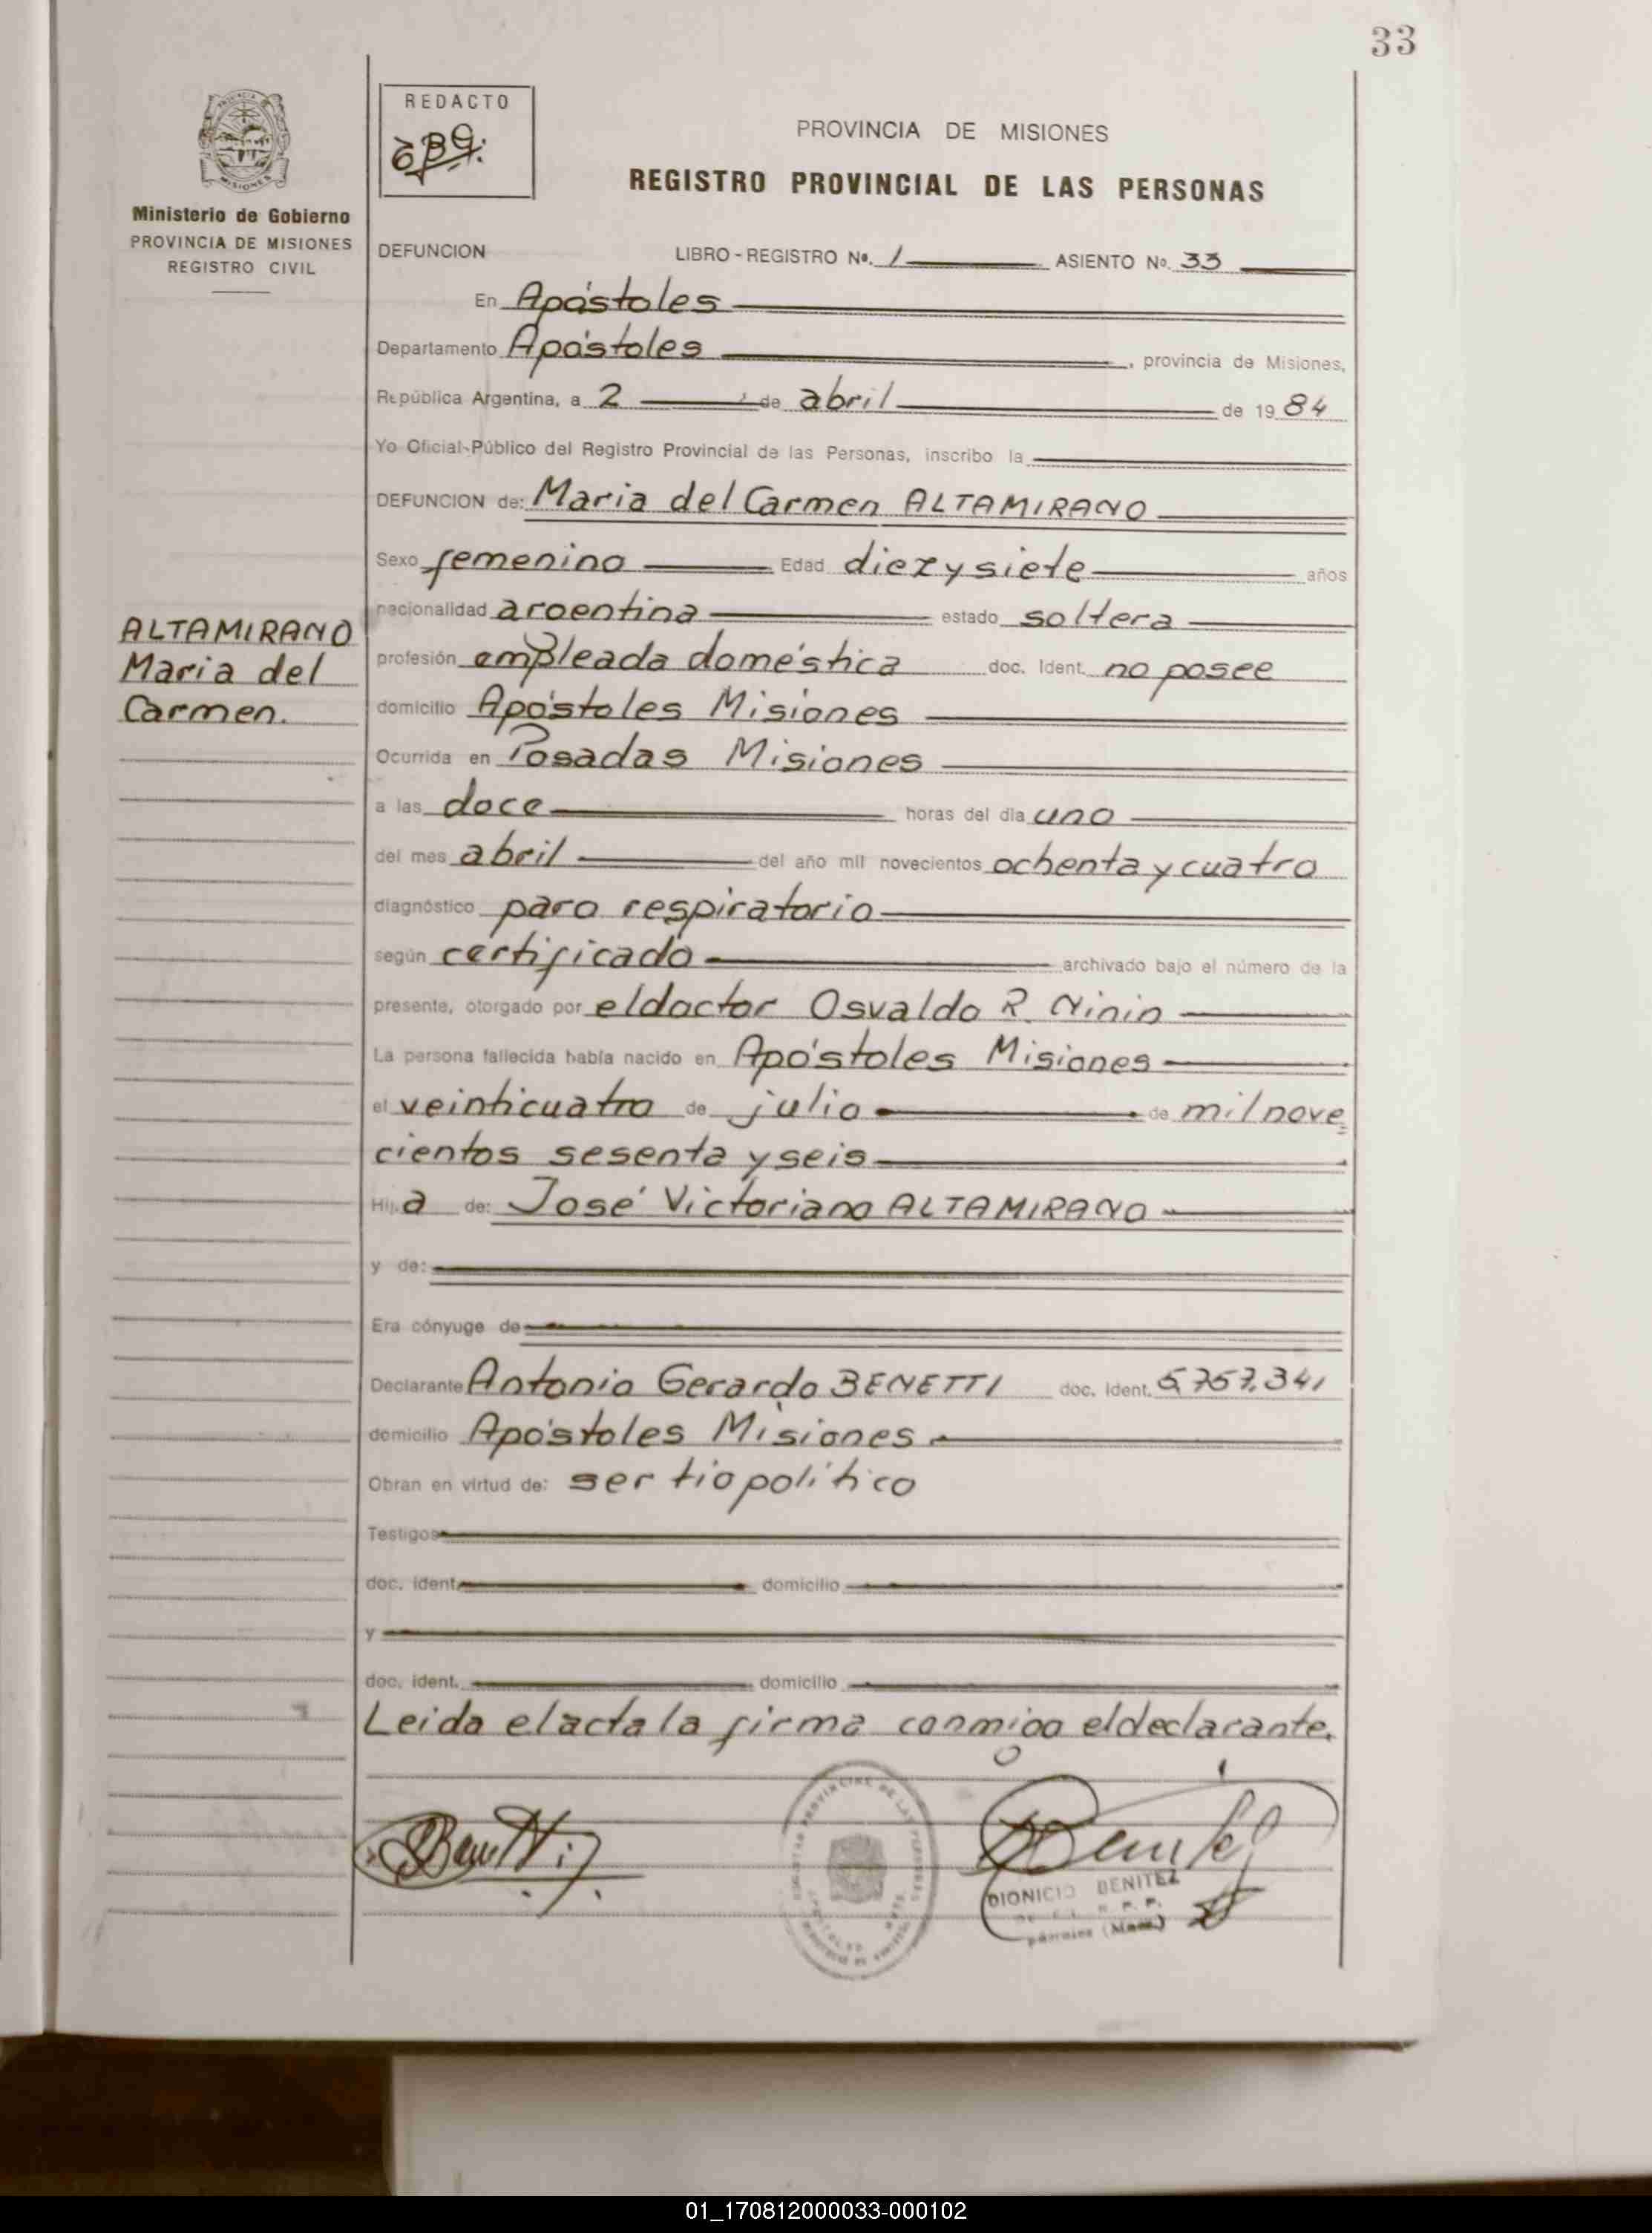 33
REDACTO
PROVINCIA DE MISIONES
REGISTRO PROVINCIAL DE LAS PERSONAS
MISIONES
Ministerio de Gobierno
PROVINCIA DE MISIONES
REGISTRO CIVIL
DEFUNCION LIBRO - REGISTRO No. 1 ASIENTO No. 33
En Apóstoles
Departamento Apóstoles, provincia de Misiones,
República Argentina, a 2 de abril de 1984
Yo Oficial Público del Registro Provincial de las Personas, inscribo la
DEFUNCION de: Maria del Carmen ALTAMIRANO
Sexo femenino Edad diez y siete años
nacionalidad argentina estado soltera
profesión empleada doméstica doc. Ident. no posee
domicilio Apóstoles Misiones
Ocurrida en Posadas Misiones
a las doce horas del día uno
del mes abril del año mil novecientos ochenta y cuatro
diagnóstico paro respiratorio
según certificado archivado bajo el número de la
presente, otorgado por el doctor Osvaldo R. Ninin
La persona fallecida había nacido en Apóstoles Misiones
el veinticuatro de julio de mil nove
cientos sesenta y seis
Hija de: José Victoriano ALTAMIRANO
y de:
Era cónyuge de
Declarante Antonio Gerardo BENETTI doc. Ident. 5.767.341
domicilio Apóstoles Misiones
Obran en virtud de: ser tio político
Testigos
doc. ident. domicilio
y
doc. ident. domicilio
Leida el acta la firma conmigo el declarante.
ALTAMIRANO
Maria del
Carmen.
DIONICIO BENITEZ
01_170812000033-000102